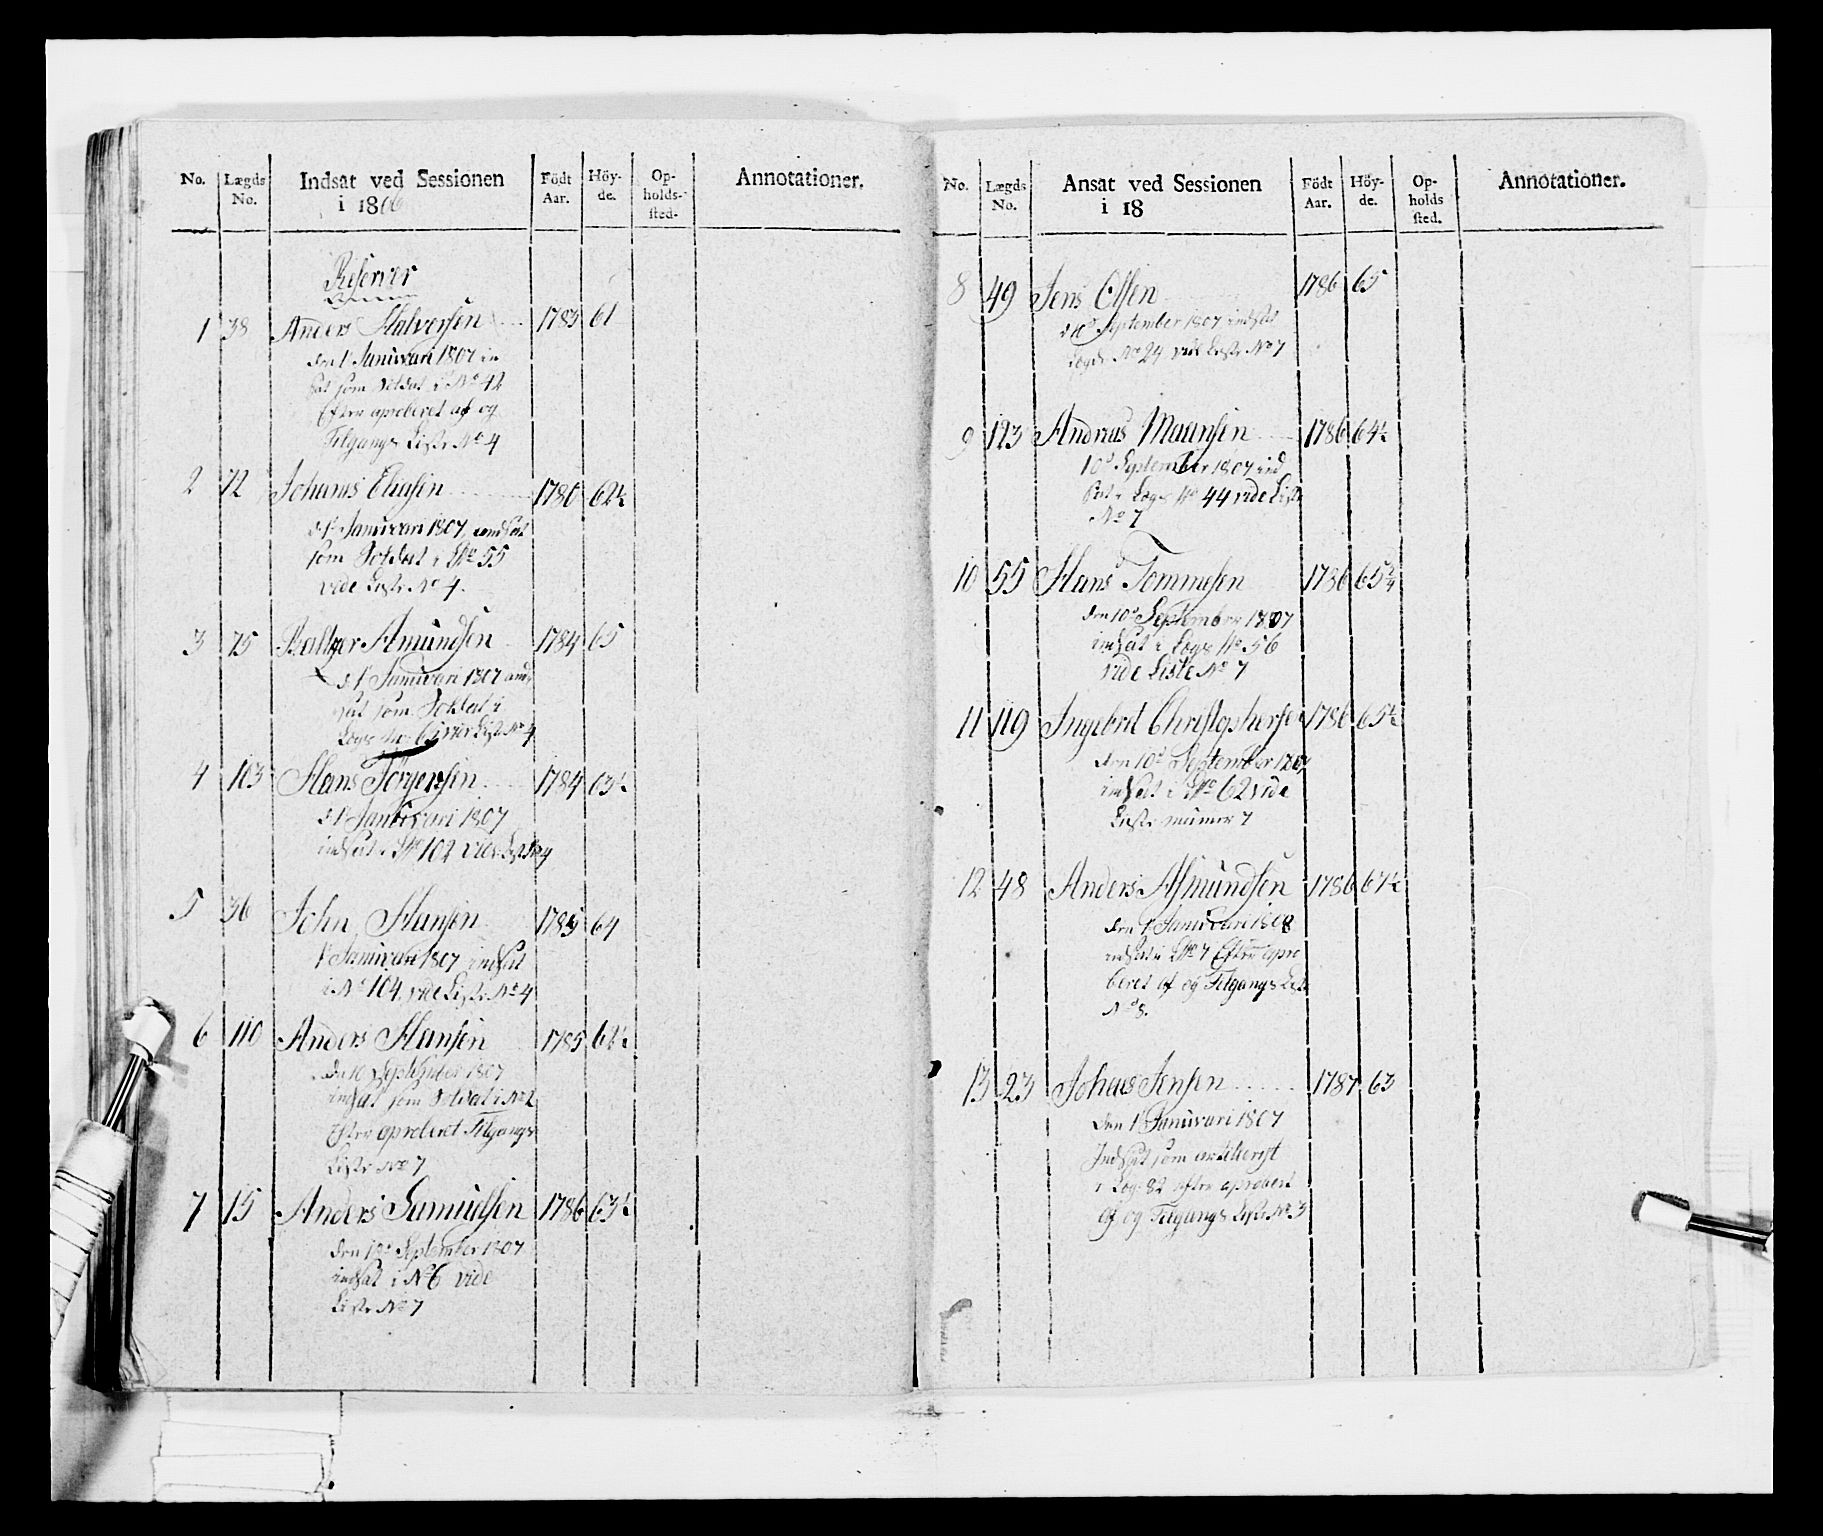 No. Lægds No. Indsat ved Sessionen i 1806 Födt Aar. Höy-de. Op-holds-sted. Annotationer.
Reserver
1 38 Anders Halversen 1783 61
den 1 Januvari 1807 in
sat som Soldat i No 42
Efter aproberet af og
Tilgangs Liste No 4
2 72 Johanis Eliasen 1780 62½
d 1 Januvari 1807 indsat
som Soldat i No 55
vide Liste No 4.
3 75 Baltzer Amundsen 1784 65
d 1 Januvari 1807 ind
sat som Soldat i
Lægs No 65 vide Liste No 4
4 103 Hans Torgersen 1784 63½
d 1 Januvari 1807
indsat i No 102 vide Liste No 4
5 36 John Hansen 1785 64
1 Januvari 1807 indsat
i No 104 vide Liste No 4
6 110 Anders Hansen 1785 62½
den 10 September 1807
indsat som Soldat i No 2
efter aproberet Tilgangs
Liste No 7
7 15 Anders Samuelsen 1786 63½
den 10d September 1807
indsat i No 6 vide
Liste No 7
No. Lægds No. Ansat ved Sessionen i 18 Födt Aar. Höy-de. Op-holds sted. Annotationer.
8 49 Jens Olsen 1786 65
d 10d September 1807 indsat
Lægds No 24 vide Liste No 7
9 123 Andreas Maansen 1786 64½
10d September 1807 ind
sat i Lægs No 44 vide Liste
No 7
10 55 Hans Tommesen 1786 65¾
den 10d September 1807
indsat i Lægs No 56
vide Liste No 7
11 119 Ingebret Christophersen 1786 65½
den 10d September 1807
indsat i No 62 vide
Liste numer 7
12 48 Anders Asmundsen 1786 67½
den 1 Januvari 1808
indsat i No 7 Efter apro
beret af og Tilgangs Liste
No 8.
13 23 Johanes Jensen 1787 63
den 1 Januvari 1807
Indsat som artilerist
i Læg 82 efter aprobert
af og Tilgangs Liste No 3